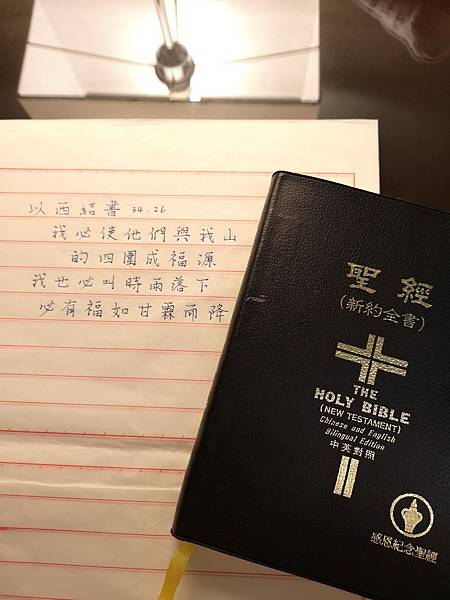 以西結書 34.26
我必使他們與我山
的四圍成福源
我也必叫時雨落下
必有福如甘霖而降
聖經
(新約全書)
THE
HOLY BIBLE
(NEW TESTAMENT)
Chinese and English
Bilingual Edition
中英對照
感恩紀念聖經